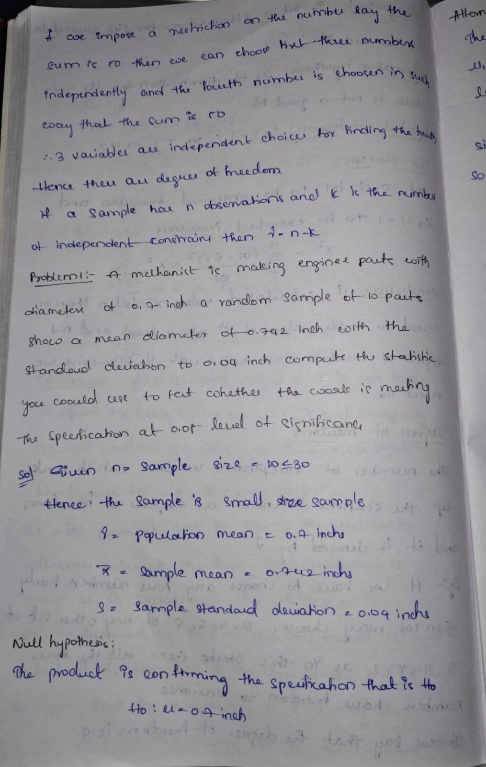 If we impose a restriction on the number say the
sum is 50 then we can choose first three numbers
independently and the fourth number is choosen in such
way that the sum is 50
∴ 3 variables are independent choices for finding the fourth
Hence there are degrees of freedom
If a sample has n observations and k is the number
of independent constrains then γ = n-k
Problem 1:- A methanist is making engines parts with
diameters of 0.7 inch a random sample of 10 parts
show a mean diameter of 0.742 inch with the
standard deviation to 0.04 inch compute the statistic
you would use to test whether the work is meeting
the specification at 0.05 level of significance,
Sol Given n = sample size = 10 ≤ 30
Hence the sample is small size sample
= population mean = 0.7 inchs
x̄ = sample mean = 0.742 inchs
S = sample standard deviation = 0.04 inchs
Null hypothesis:
The product is confirming the specification that is H0
H0 : u = 0.7 inch
Altern
The
u,
si
so